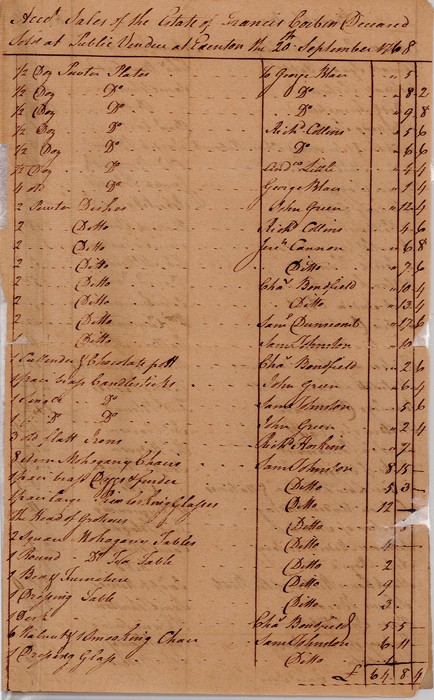 Accot Sales of the Estate of Francis Corbin Deceased
Sold at Public Vendue at Edenton the 20th September 1768
1/2 Doz Pewter Plates to George Blair " 5
1/2 Doz Do Do " 8 2
1/2 Doz Do Do " 9 8
1/2 Doz Do Richd Collins " 5 6
1/2 Doz Do Do " 6 6
1/2 Doz Do Andw Little " 4 4
4 old Do George Blair " 1 4
2 Pewter Dishes John Green " 12 4
2 Ditto Richd Collins " 4 6
2 Ditto Jerh Cannon " 6 8
2 Ditto Ditto " 7 6
2 Ditto Chas Bondfield " 10 4
2 Ditto Ditto " 13 4
2 Ditto Saml " 17 6
2 Ditto Saml Johnston " 10
1 & Chocolate pott Chas Bondfield " 2 6
1 pair brass Candlesticks John Green " 6 4
1 single Do Saml Johnston " 5 6
1 Do Do John Green " 2 4
3 old flatt Irons Richd Hoskins " 7 -
8 Mahogany Chairs Saml Johnston 8 15 -
1 pair brass Doggs & fender Ditto 5 3 -
1 pair large Looking Glasses Ditto 12 -
the Head of Ditto
2 Square Mahogany Tables Ditto 4
1 Round Do Tea Table Ditto 2
1 Bed & Furniture Ditto 9
1 Dressing Table Ditto 3
1 Desk Chas Bondfield 5 5 -
6 Walnut & 1 Smoaking Chair Saml Johnston 6 11 -
1 Dressing Glass Ditto 1
£ 64 8 4